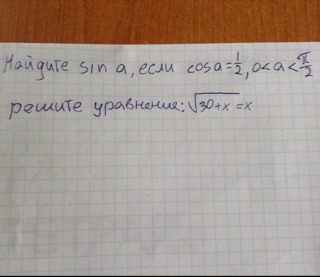 Найдите sin a, если cosa=1/2, 0<a<π/2
решите уравнение: √30+x =x